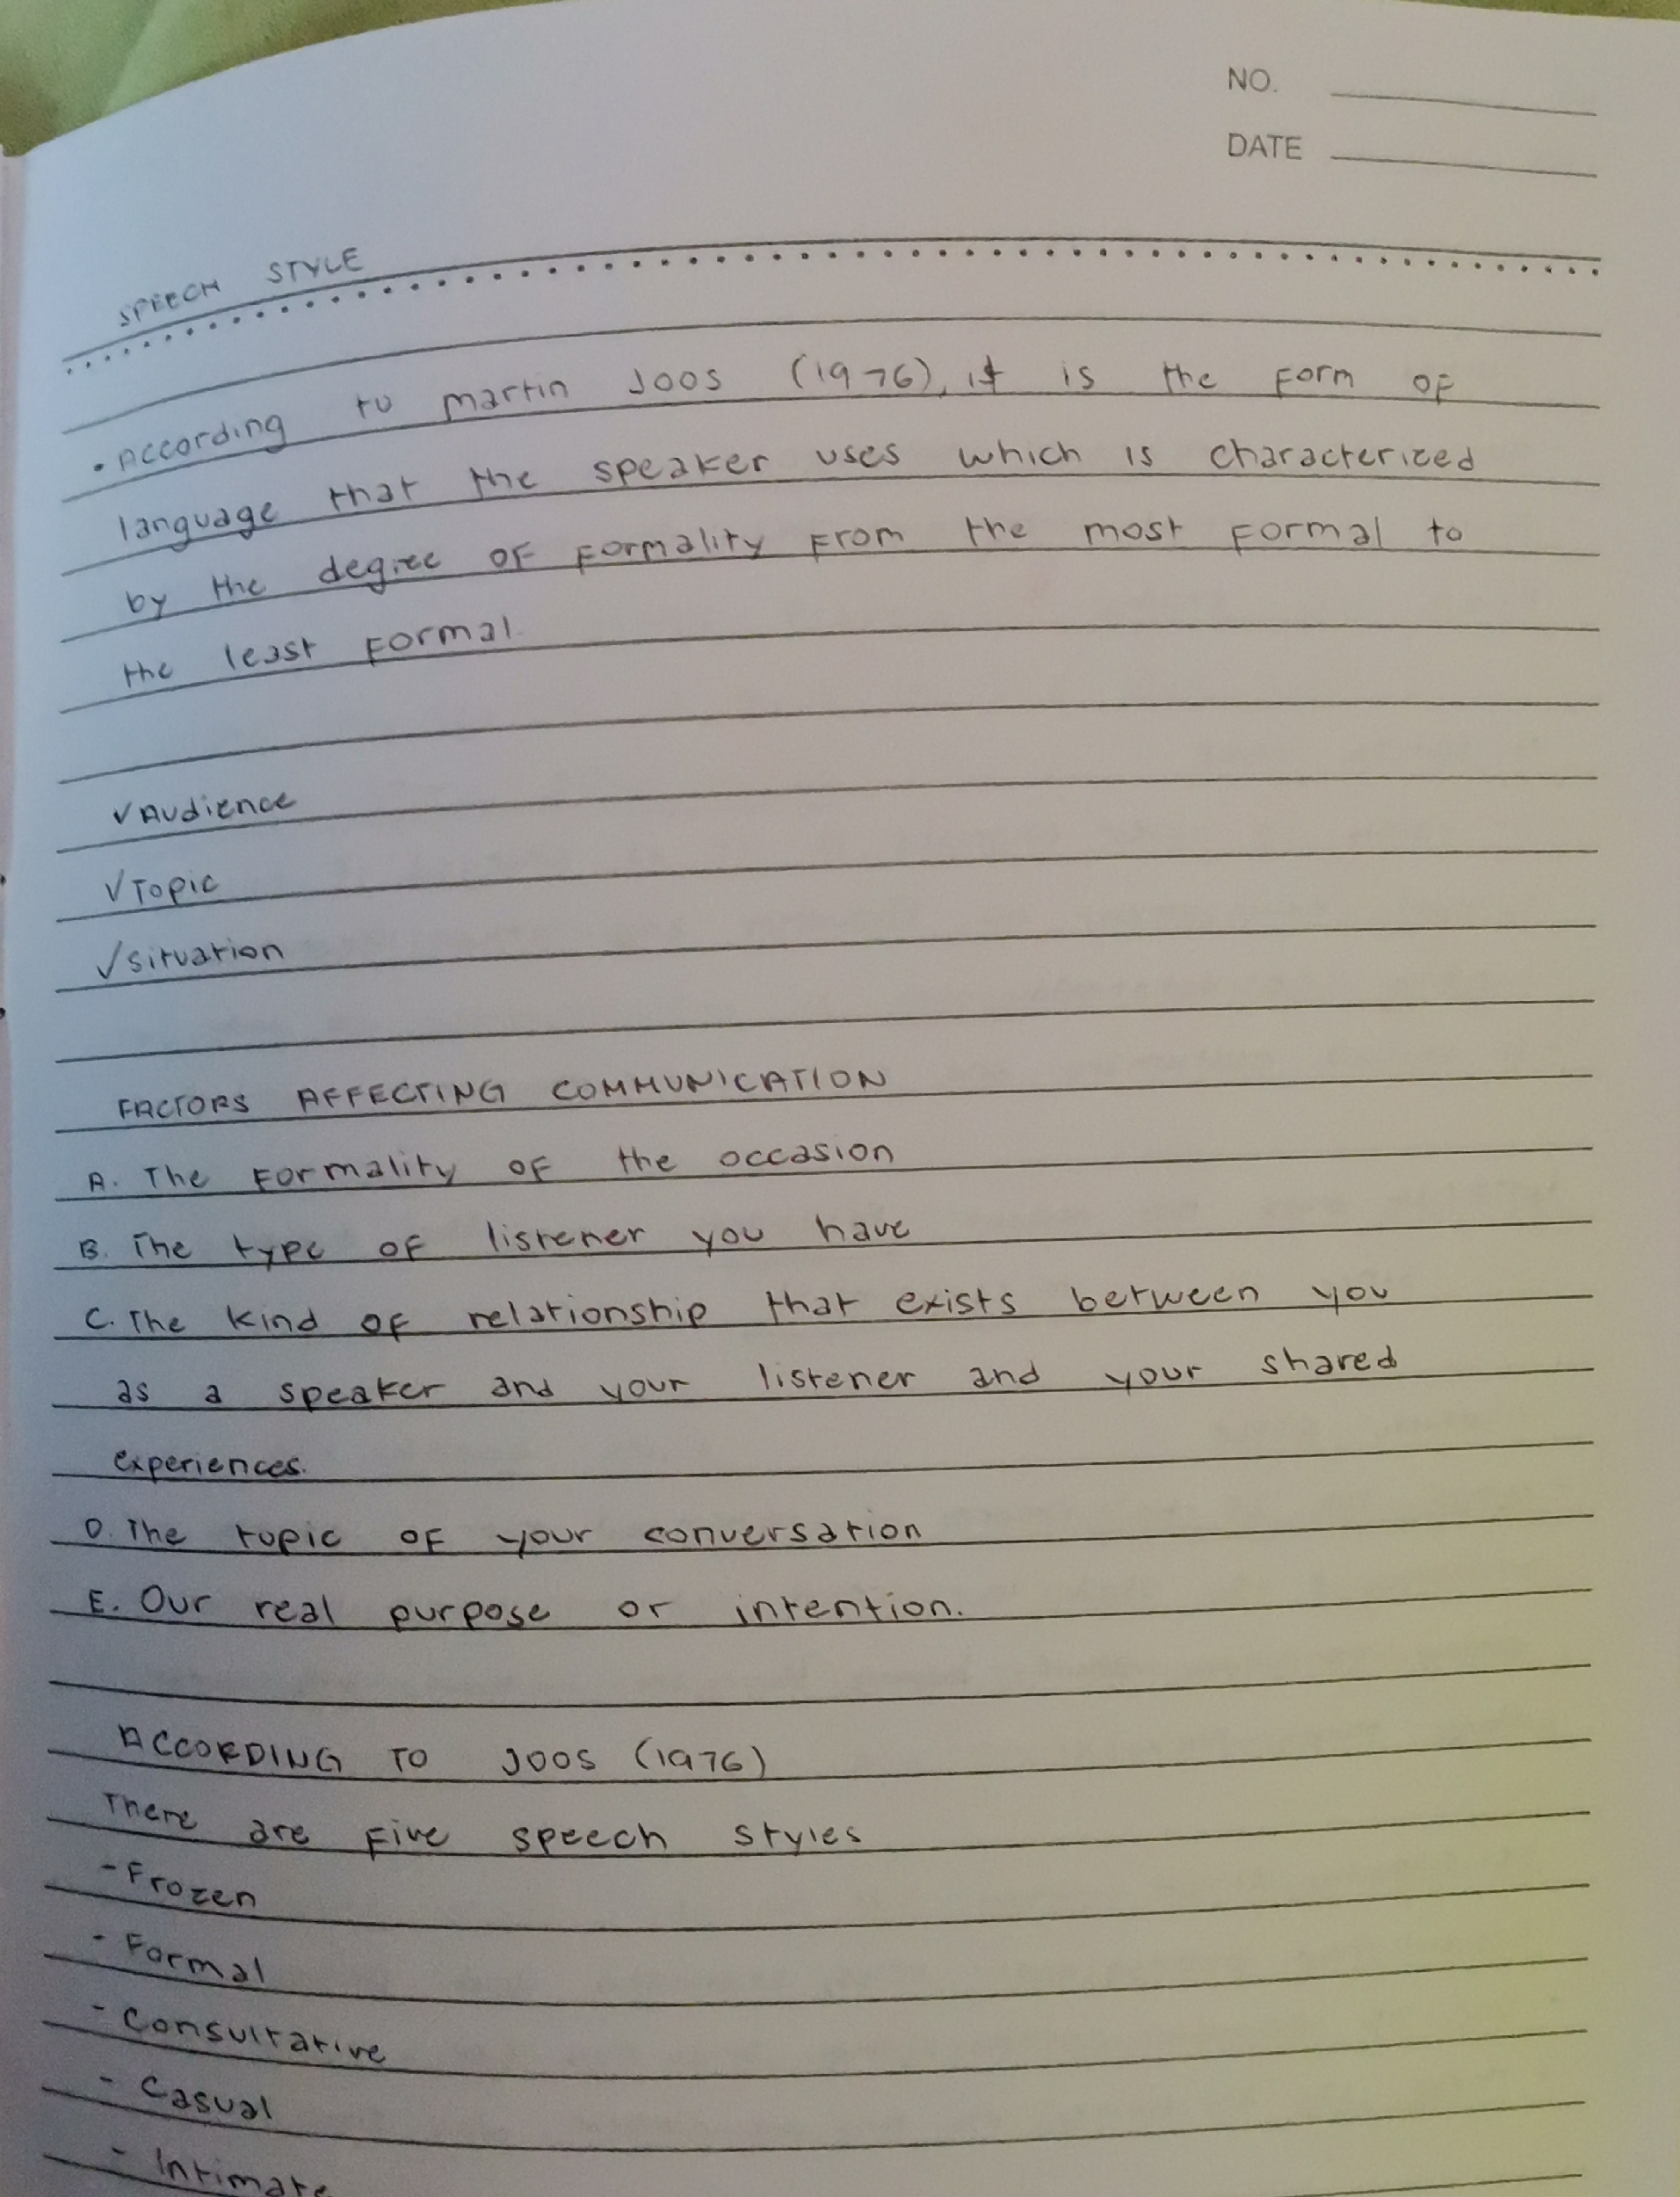 NO.
DATE
SPEECH STYLE
• According to martin Joos (1976), it is the form of
language that the speaker uses which is characterized
by the degree of formality from the most formal to
the least formal.
✓ Audience
✓ Topic
✓ Situation
FACTORS AFFECTING COMMUNICATION
A. The formality of the occasion
B. The type of listener you have
C. The kind of relationship that exists between you
as a speaker and your listener and your shared
experiences.
D. The topic of your conversation
E. Our real purpose or intention.
ACCORDING TO JOOS (1976)
There are five speech styles
- Frozen
- Formal
- Consultative
- Casual
- Intimate